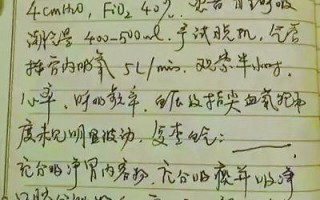 4cmH₂O, FiO₂ 40%. 患者自主呼吸
潮气量 400-500ml. 予试脱机, 气管
插管内吸氧 5L/min. 观察半小时.
心率、呼吸频率、血压及指尖血氧饱和
度未见明显波动. 复查血气: ____.
充分吸净胃内容物, 充分吸痰并吸净